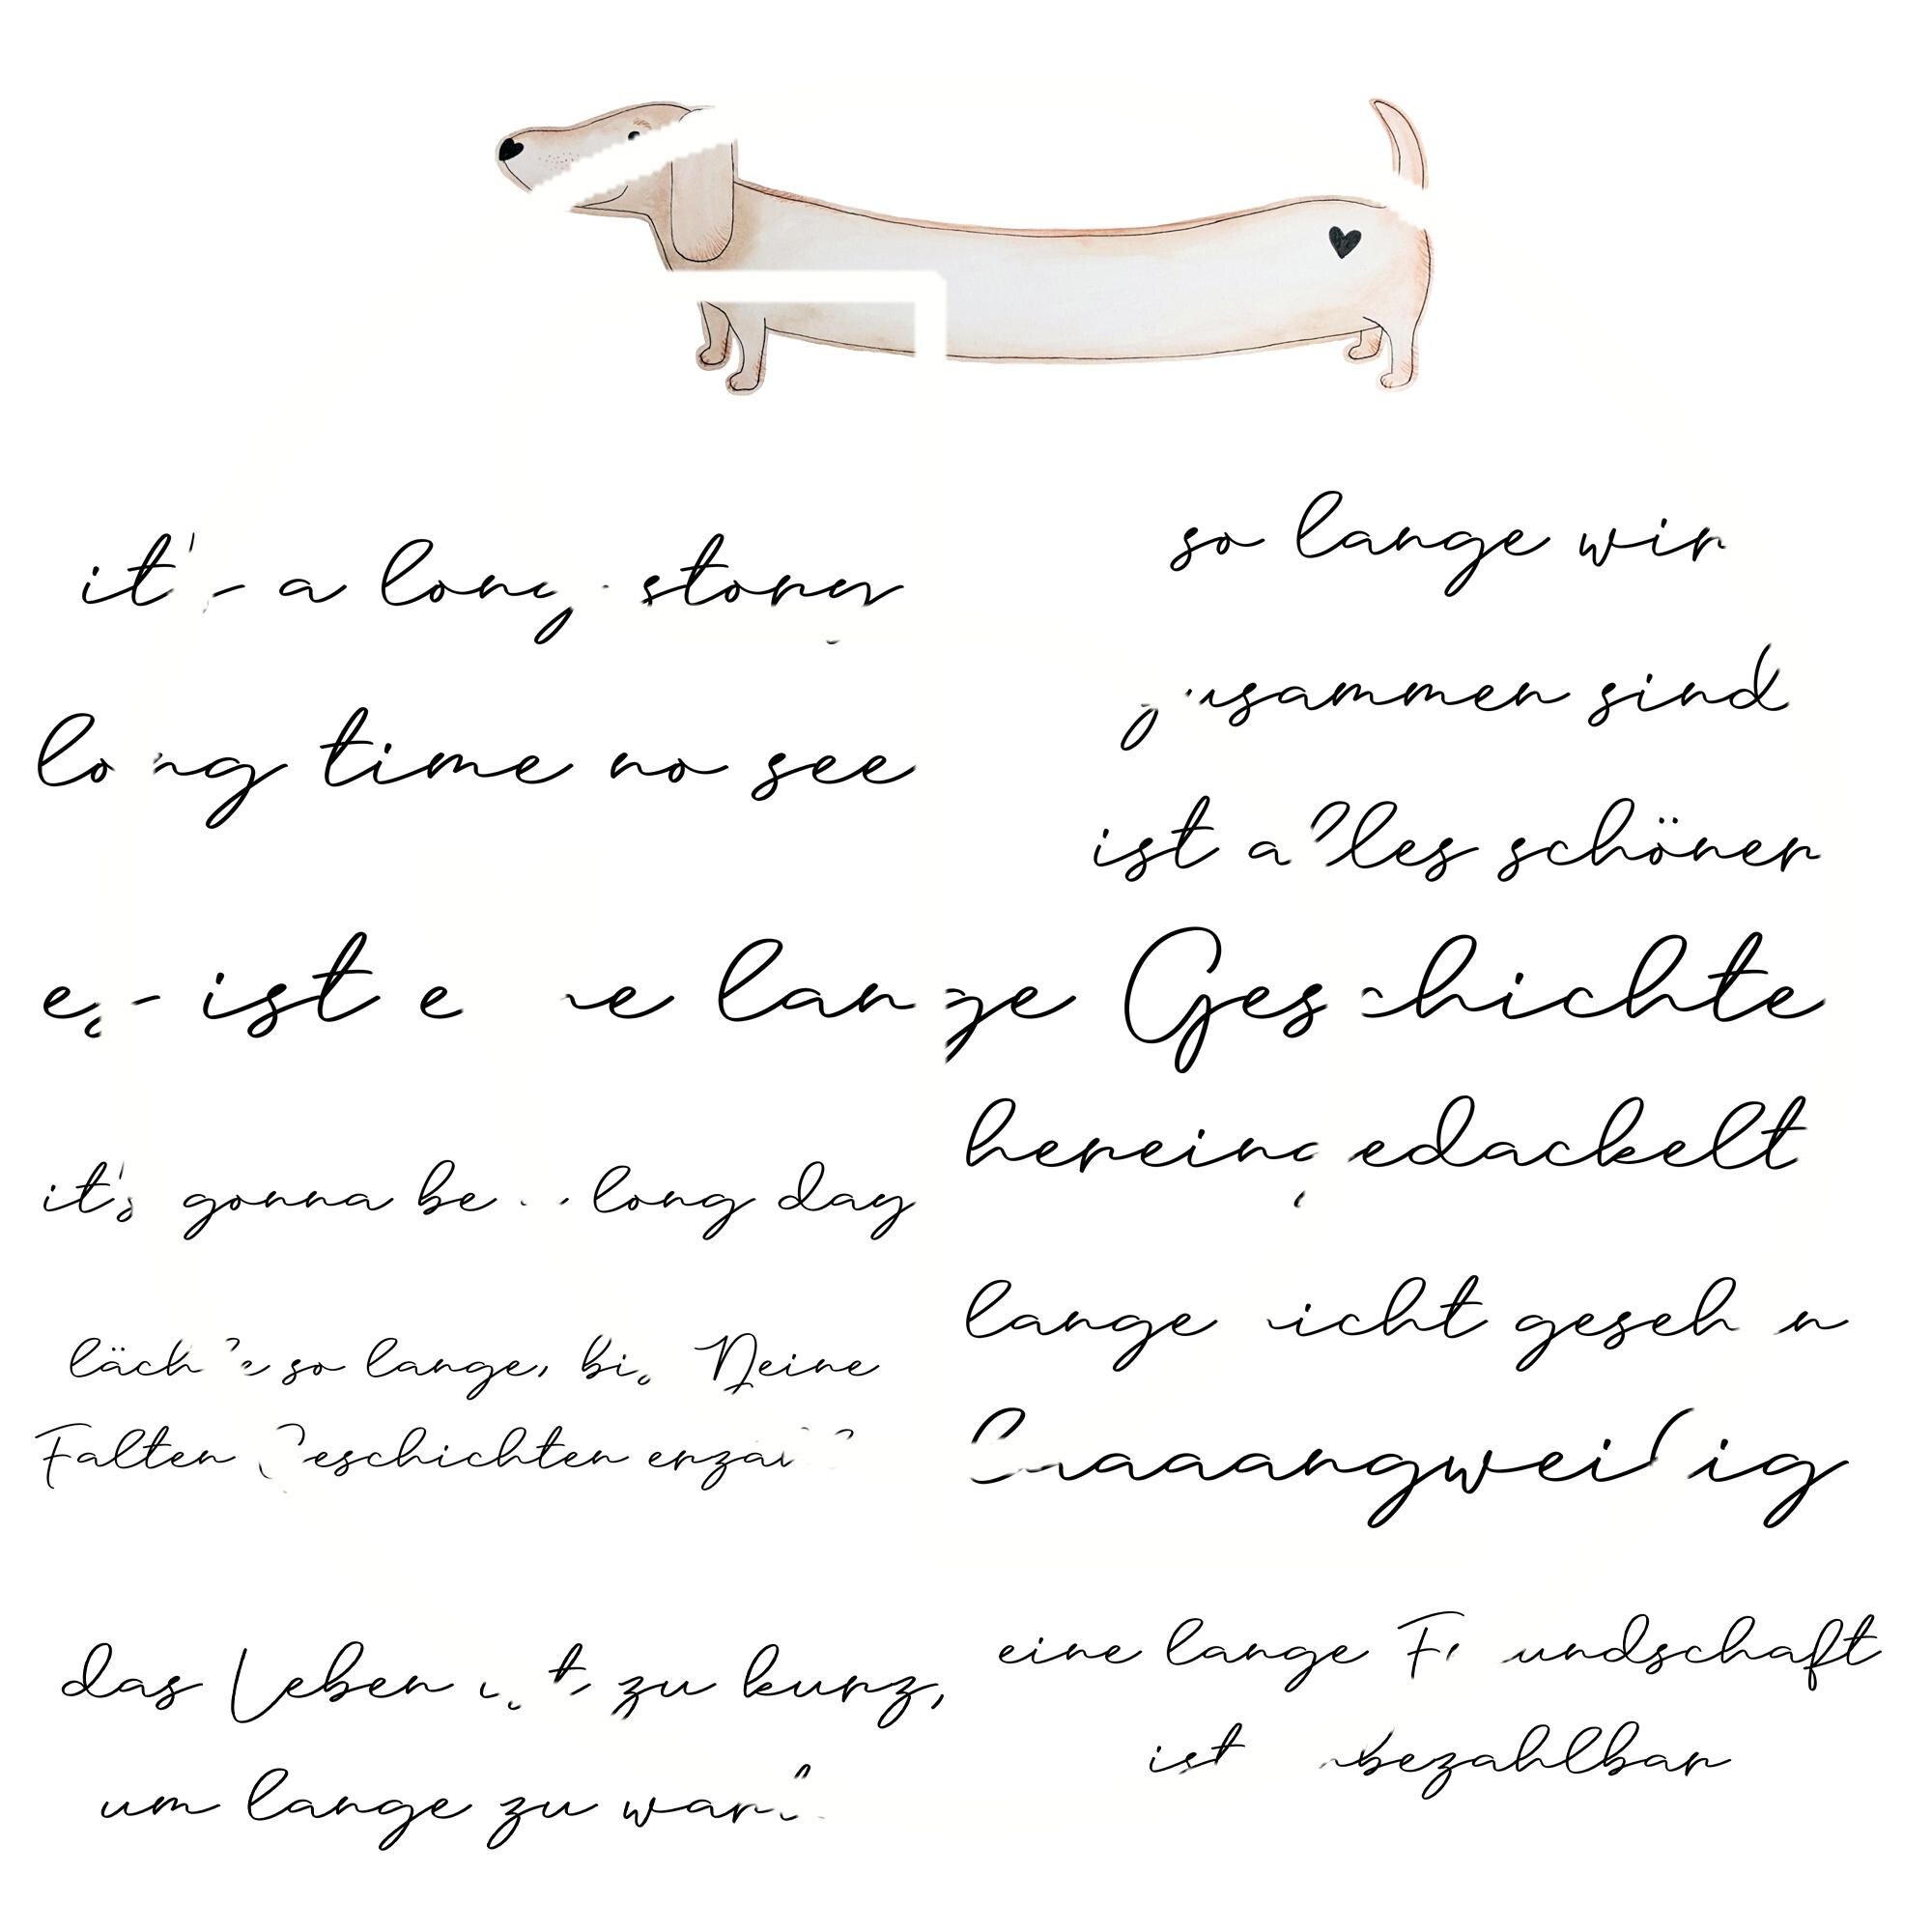 it's a long story
long time no see
so lange wir
zusammen sind
ist alles schöner
es ist eine lange Geschichte
hereingedackelt
it's gonna be long day
lange nicht gesehen
lächle so lange, bis Deine
Falten Geschichten
Laaaangweilig
das Leben ist zu kurz,
um lange zu
eine lange Freundschaft
ist unbezahlbar